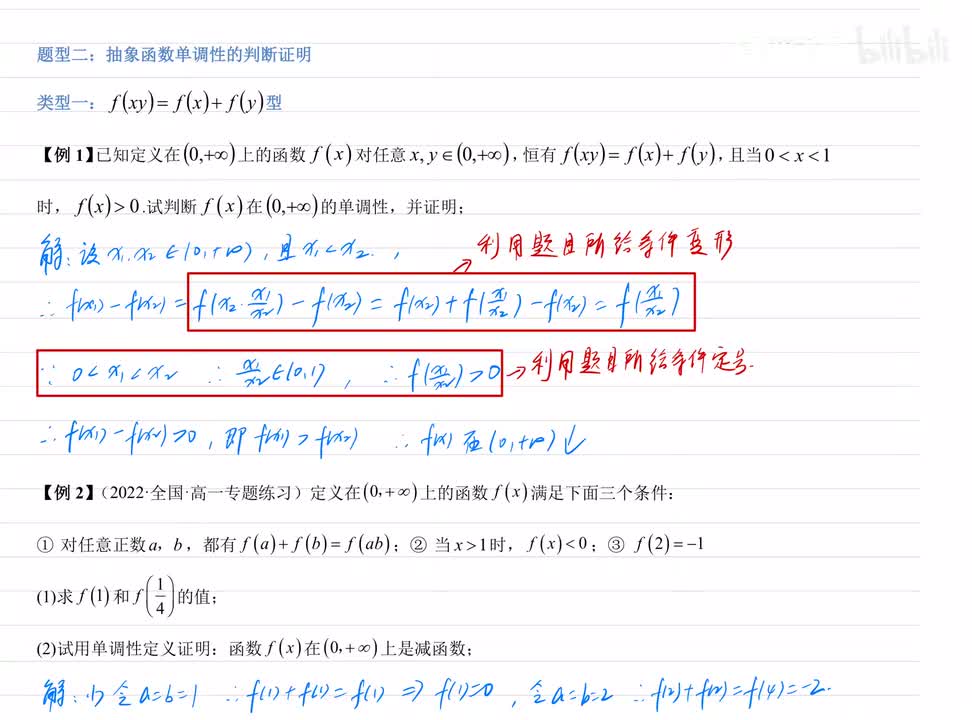 bilibili
题型二：抽象函数单调性的判断证明
类型一：f(xy)=f(x)+f(y)型
【例1】已知定义在(0,+∞)上的函数f(x)对任意x,y∈(0,+∞),恒有f(xy)=f(x)+f(y),且当0<x<1
时，f(x)>0.试判断f(x)在(0,+∞)的单调性，并证明；
利用题目所给条件变形
解:设x₁,x₂∈(0,+∞),且x₁<x₂.,
∴f(x₁)-f(x₂)=f(x₂·x₁/x₂)-f(x₂)=f(x₂)+f(x₁/x₂)-f(x₂)=f(x₁/x₂)
∵0<x₁<x₂ ∴x₁/x₂∈(0,1), ∴f(x₁/x₂)>0→利用题目所给条件定号.
∴f(x₁)-f(x₂)>0,即f(x₁)>f(x₂) ∴f(x)在(0,+∞)↓
【例2】（2022·全国·高一专题练习）定义在(0,+∞)上的函数f(x)满足下面三个条件：
① 对任意正数a，b，都有f(a)+f(b)=f(ab)；② 当x>1时，f(x)<0；③ f(2)=-1
(1)求f(1)和f(1/4)的值；
(2)试用单调性定义证明：函数f(x)在(0,+∞)上是减函数；
解:(1)令a=b=1 ∴f(1)+f(1)=f(1)⇒f(1)=0,令a=b=2 ∴f(2)+f(2)=f(4)=-2.